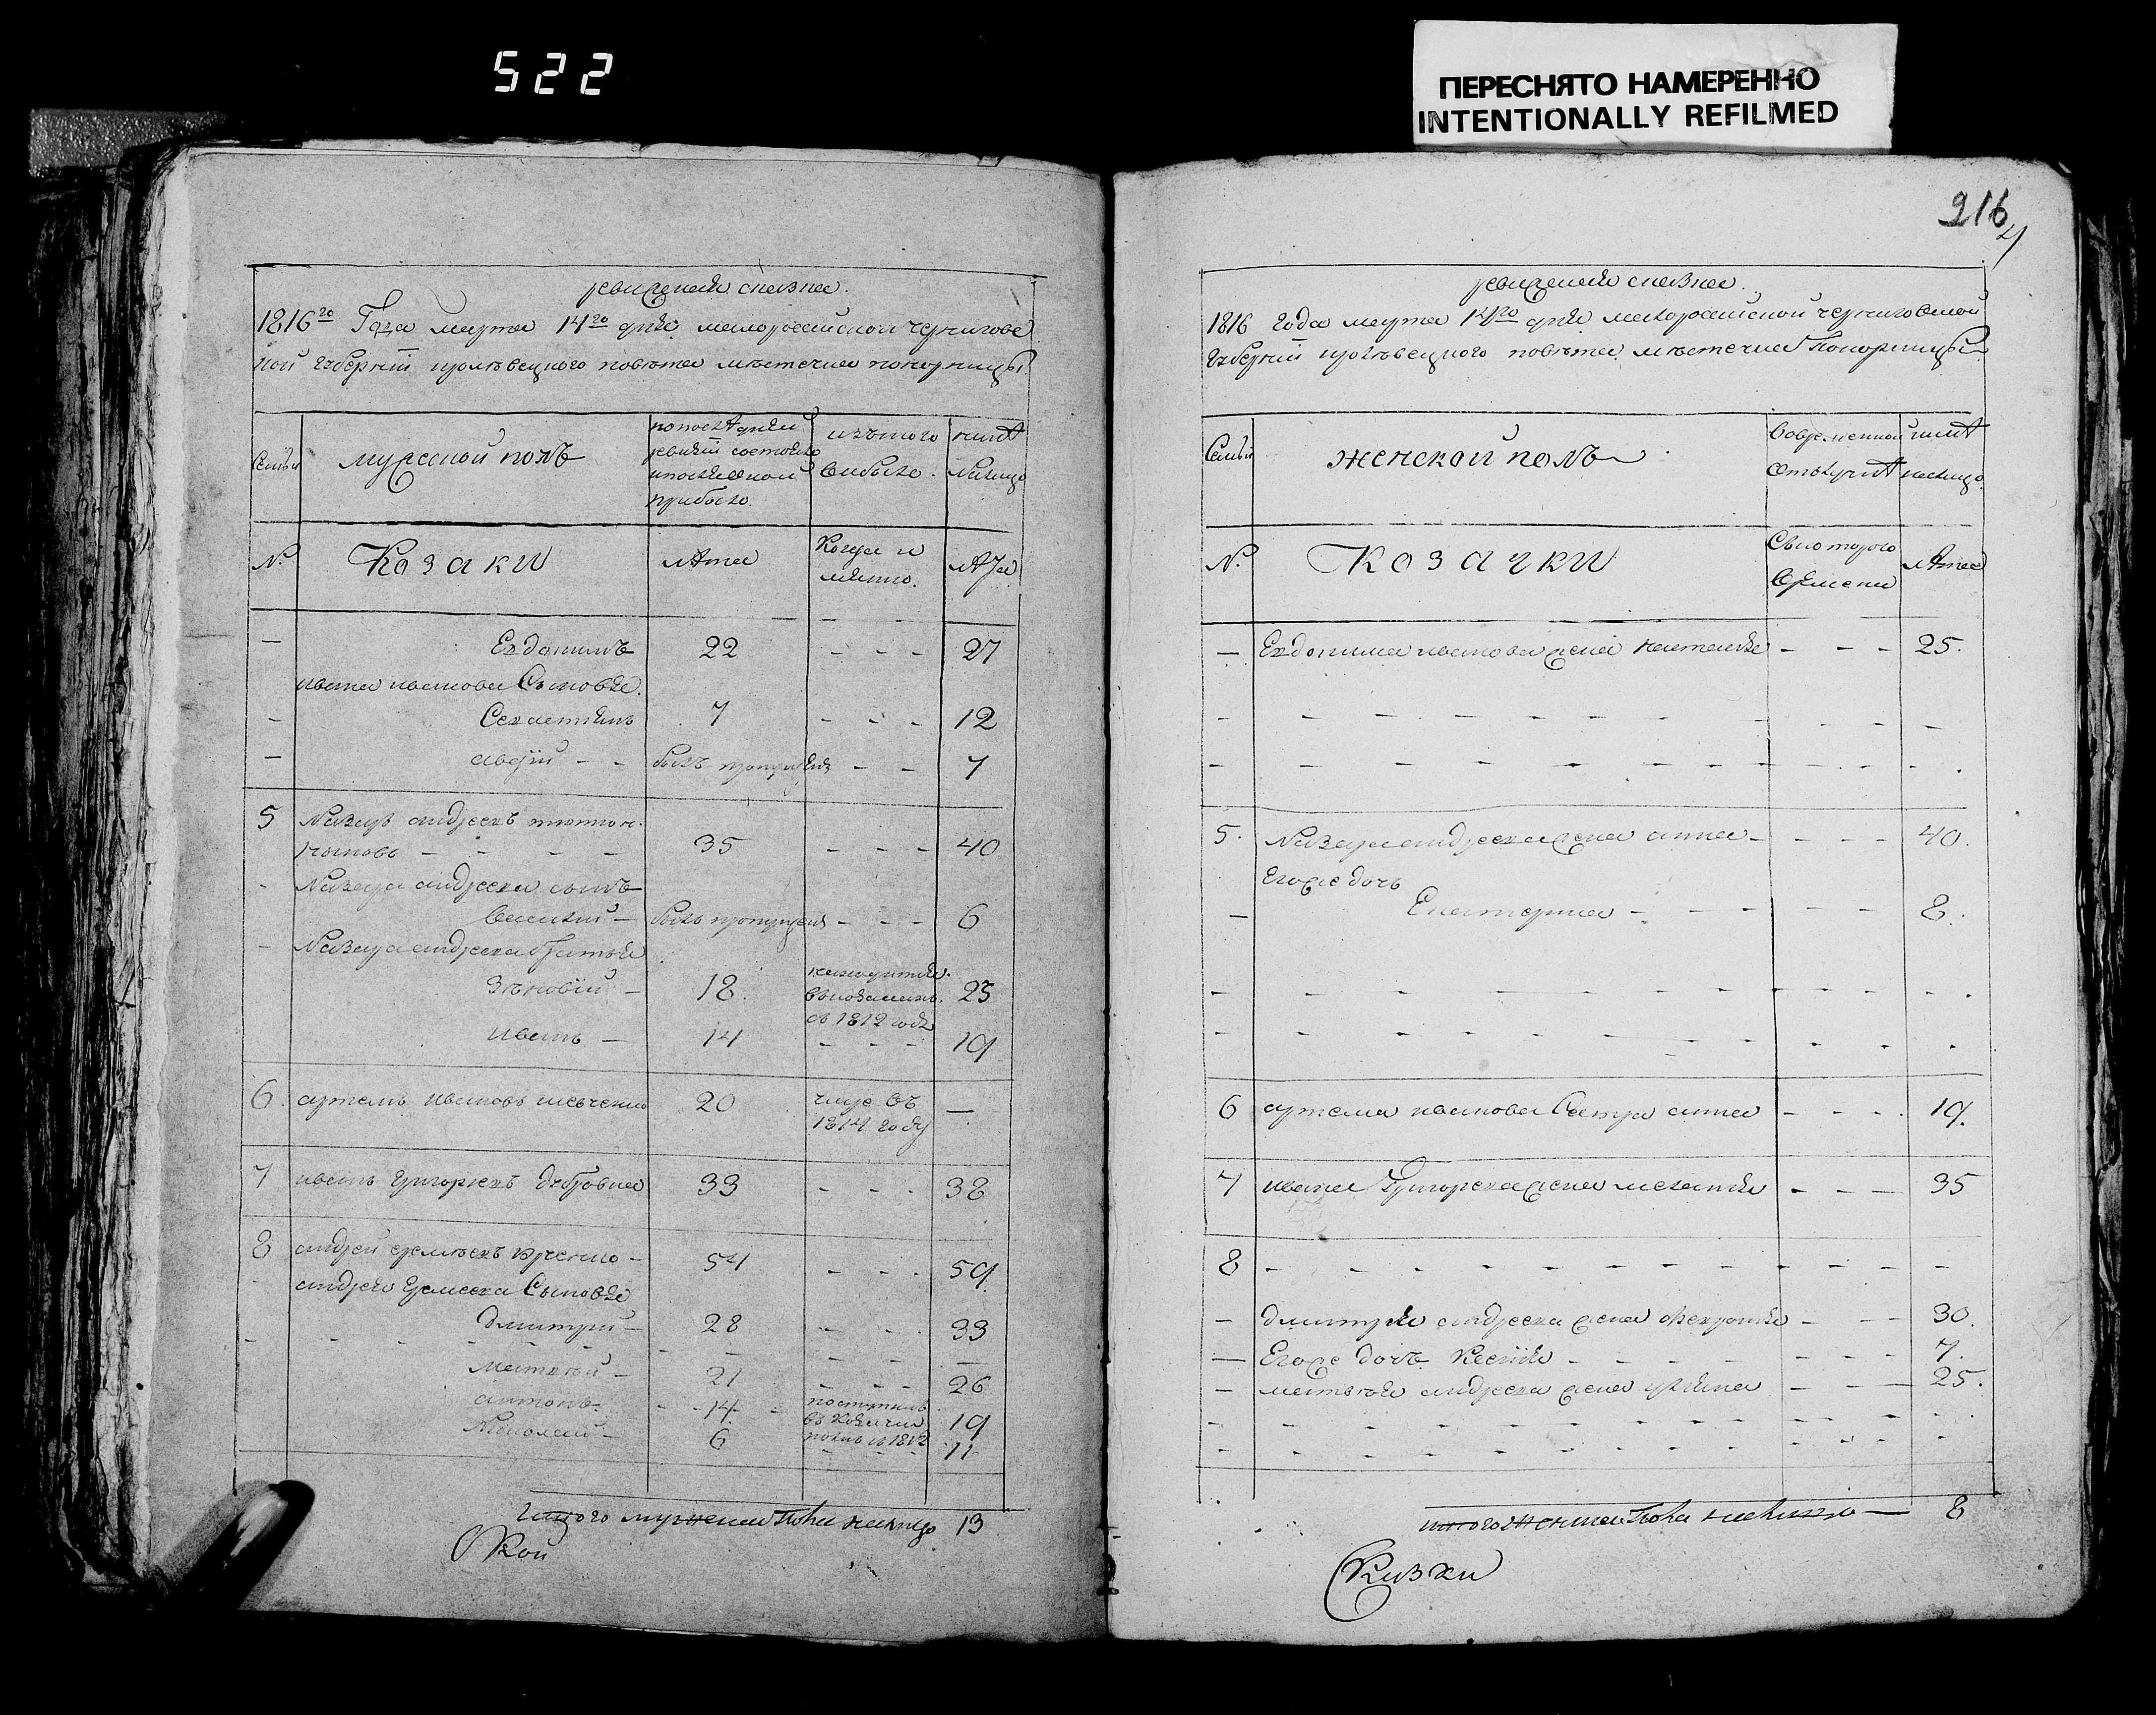 522
ПЕРЕСНЯТО НАМЕРЕННО
INTENTIONALLY REFILMED
216
4
ревизская сказка.
1816го Года марта 14го дня малороссийской черниговс
кой губернiи кролевецкого повета местечка понорницы
Семьи
мужеской полъ
по последней
ревизiи состояло
и после оной
прибыло
изъ того
выбыло
ныне
налицо
№.
Козаки
лета
Когда и
лета
Евдокимъ
22
27
ивана иванова Сыновья
Севастиянъ
7
12
авдiй
былъ пропущенъ
7
5
Назаръ андреевъ
35
40
Назара андреева сынъ
Василий
былъ пропущенъ
6
Назара андреева братья
Зеновiй
18
находится
с 1812 года
23
иванъ
14
19
6
артемъ ивановъ шевченко
20
въ
1814 году
7
иванъ григорьевъ дубровка
33
38
8
андрей
54
59
андрея Сыновья
дмитрий
28
33
матвей
21
26
антонъ
14
поступилъ
въ козачий
полкъ в 1812
19
Николай
6
11
Итого мужеска пола налицо 13
Кой
ревизская сказка.
1816 года марта 14го дня малороссийской черниговской
губернiи кролевецкого повета местечка Понорницы
Семьи
женской полъ
Во временной
отлучке
ныне
налицо
№.
Козачки
С которого
времени
лета
Евдокима иванова жена наталья
25.
5.
Назара андреева жена анна
40.
Его же дочь
Екатерина
8.
6
артема иванова Сестра анна
19.
7
ивана Григорьева жена мелания
35
8
дмитрия андреева жена феврония
30.
Его же дочь Ксения
7.
матвея андреева жена
25.
итого женска пола налицо 8
Казки